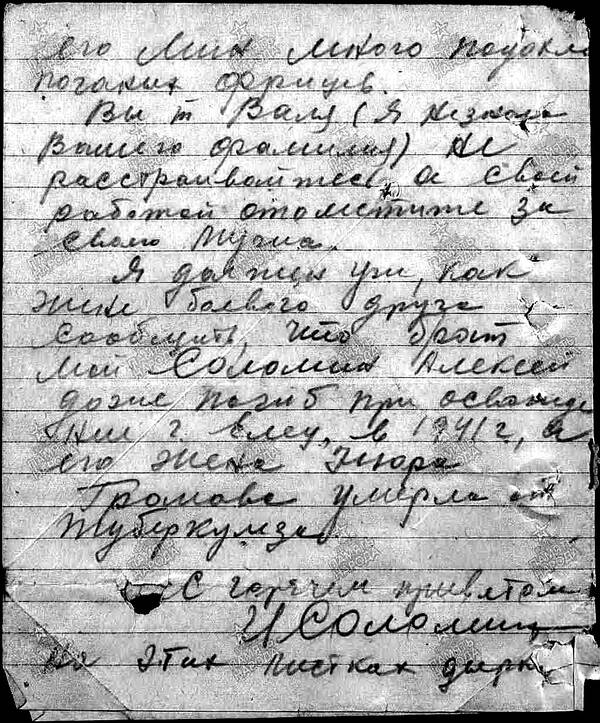 его мин много подохло
поганых фрицев.
Вы т. Валя (я незнаю
Вашего фамилия) не
расстраивайтесь, а своей
работой отомстите за
своего мужа.
Я должен уж, как
жене боевого друга
сообщить, что брат
мой Соломин Алексей
тоже погиб при освобожде
нии г. Елец, в 1941 г, а
его жена Нюра
Громова умерла от
туберкулза.
С горячем приветом
И Соломин
На этих листках дырк